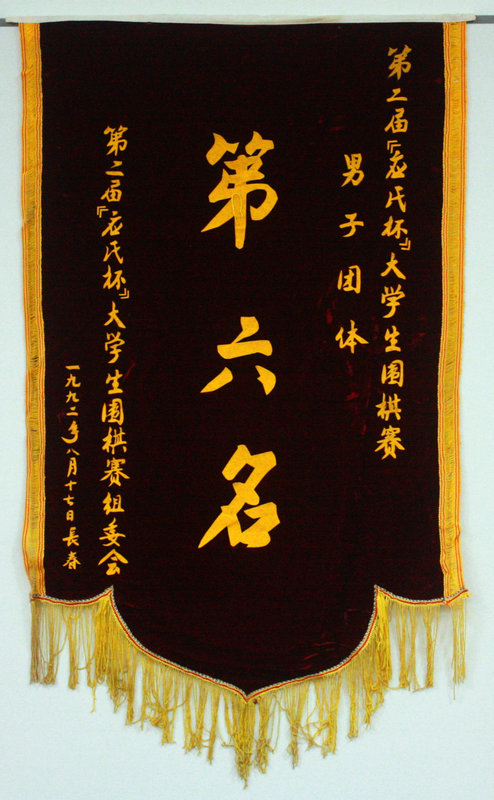 第二届『应氏杯』大学生围棋赛
男子团体
第六名
第二届『应氏杯』大学生围棋赛组委会
一九九二年八月十七日長春